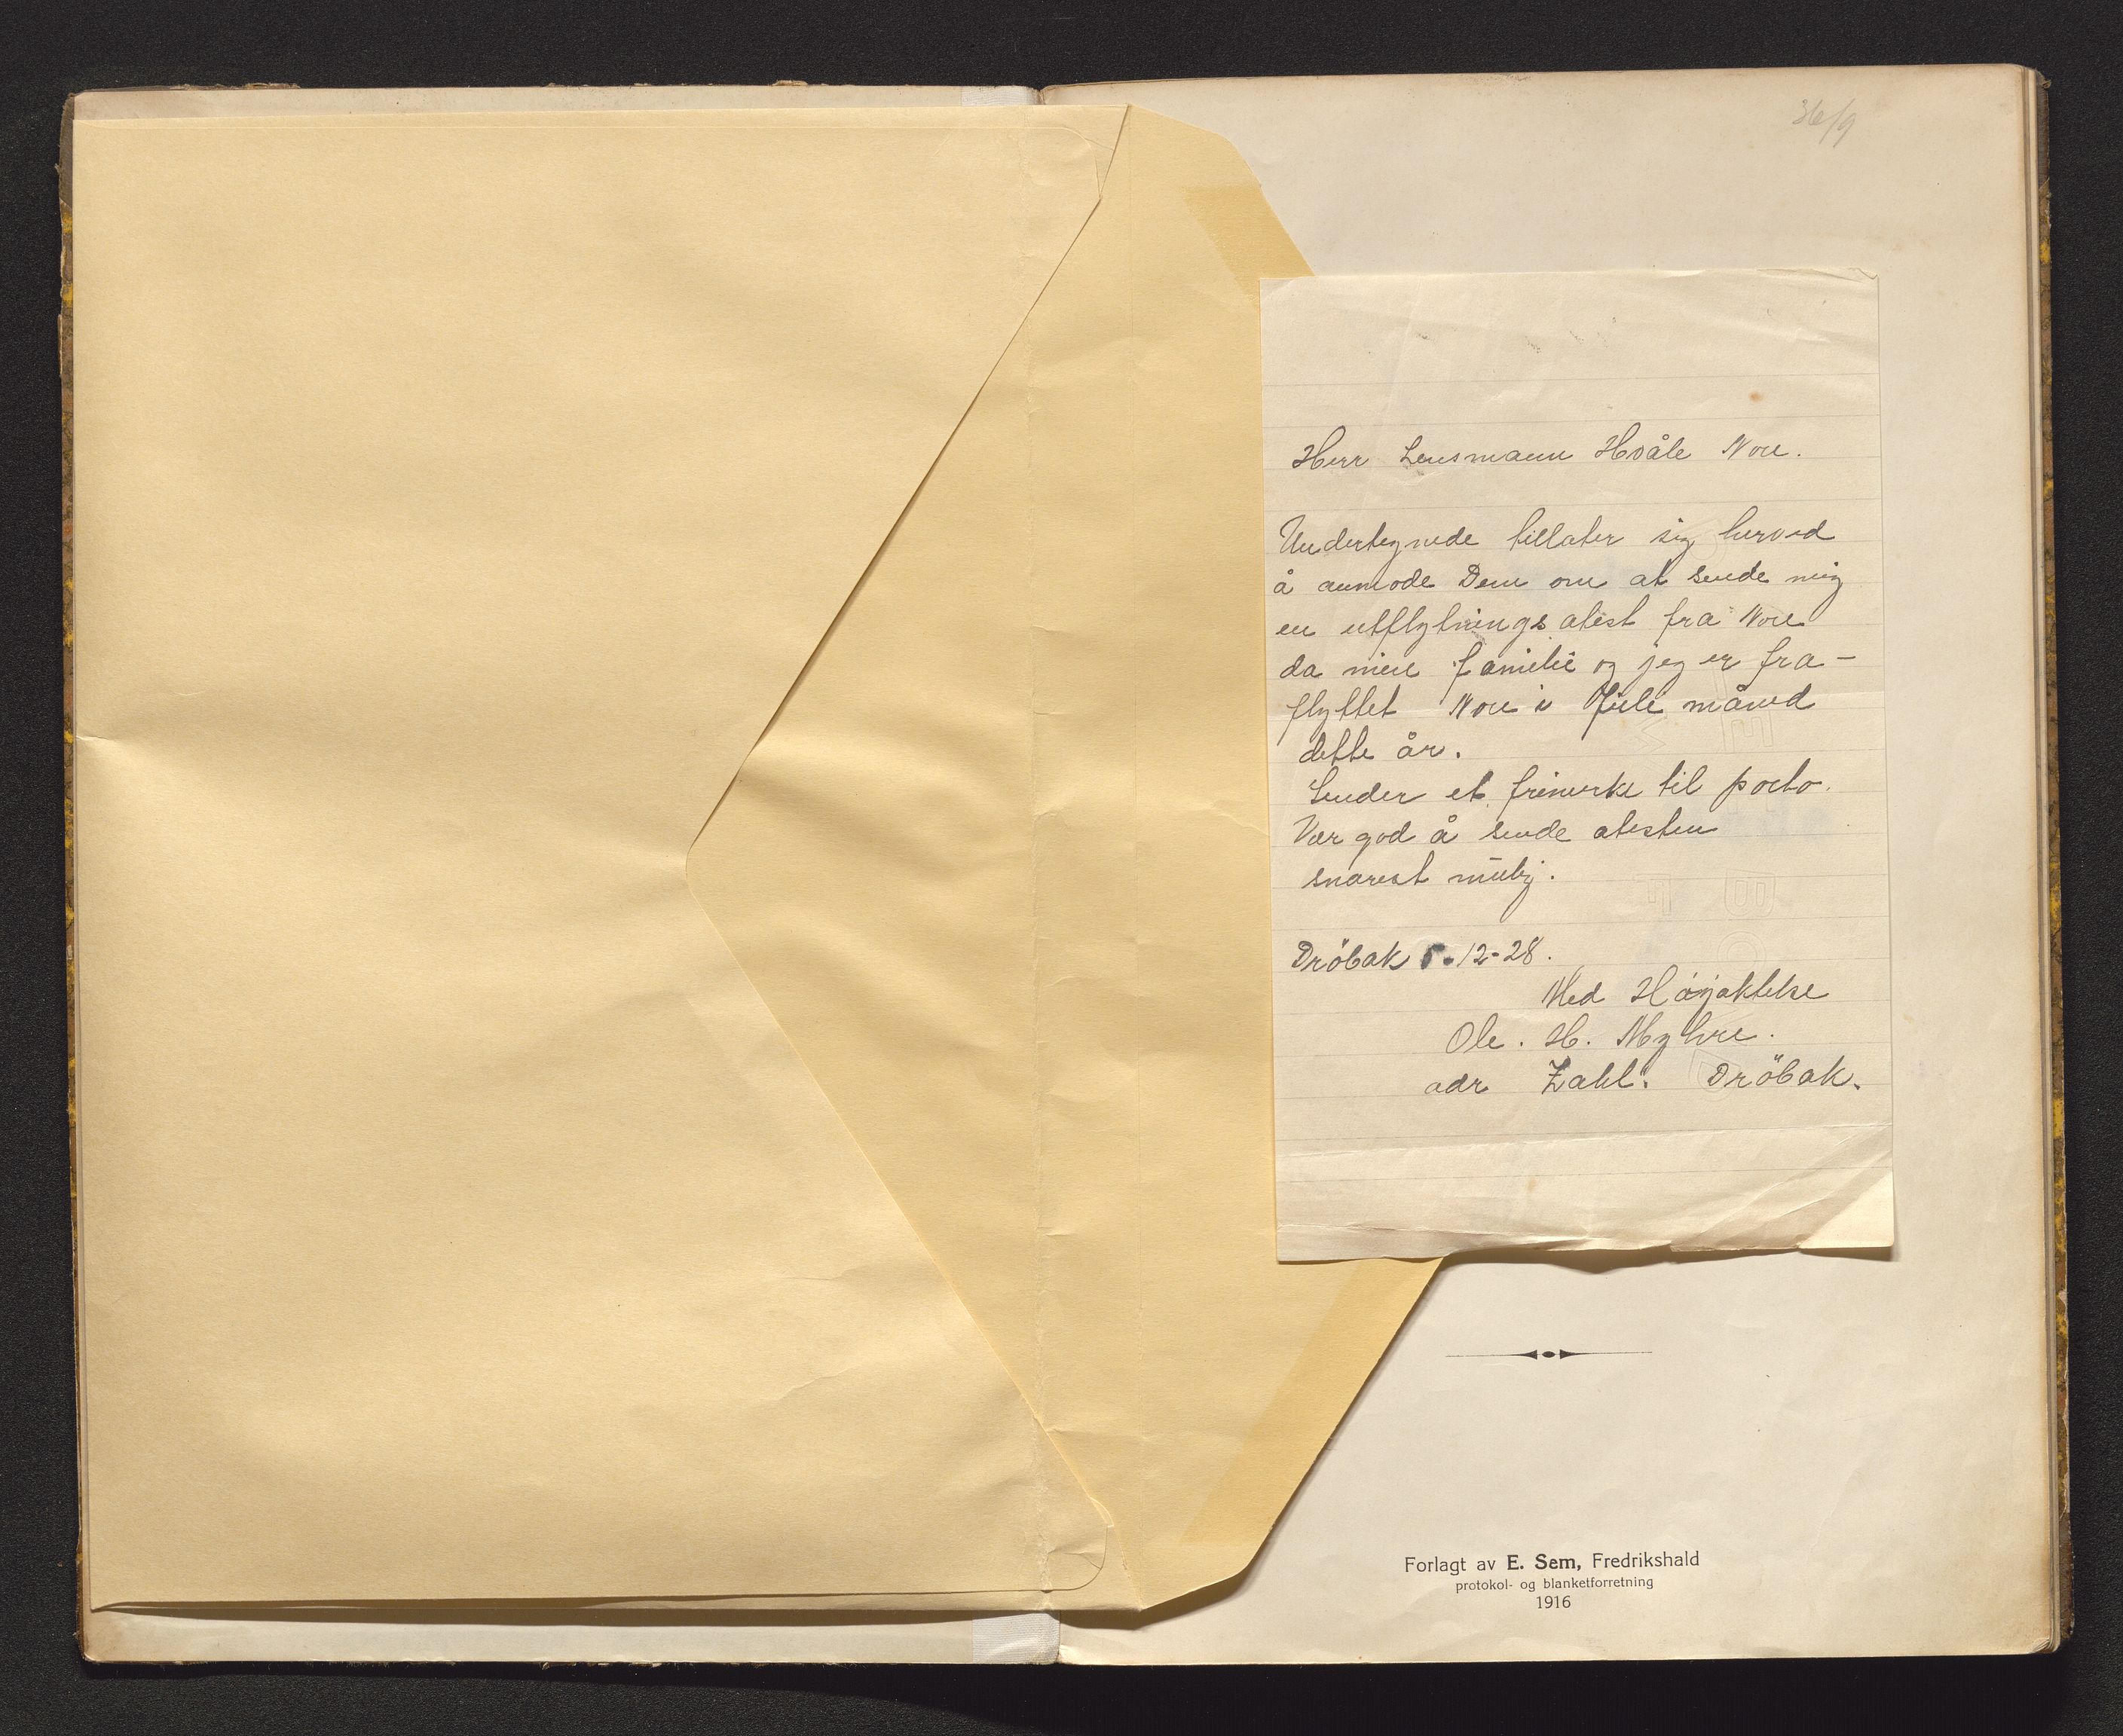 36/9
Herr Lensmann Hvåle Nore.
Undertegnede tillater sig herved
å anmode Dem om at sende mig
en utflytnings atest fra Nore
da min familie og jeg er fra-
flyttet Nore i Juli måned
dette år.
Sender et frimerke til porto.
Vær god å sende atesten
snarest mulig.
Dröbak 5-12-28.
Med Højaktelse
Ole. H. Myhre.
adr Zahl. Dröbak.
Forlagt av E. Sem, Fredrikshald
protokol- og blanketforretning
1916